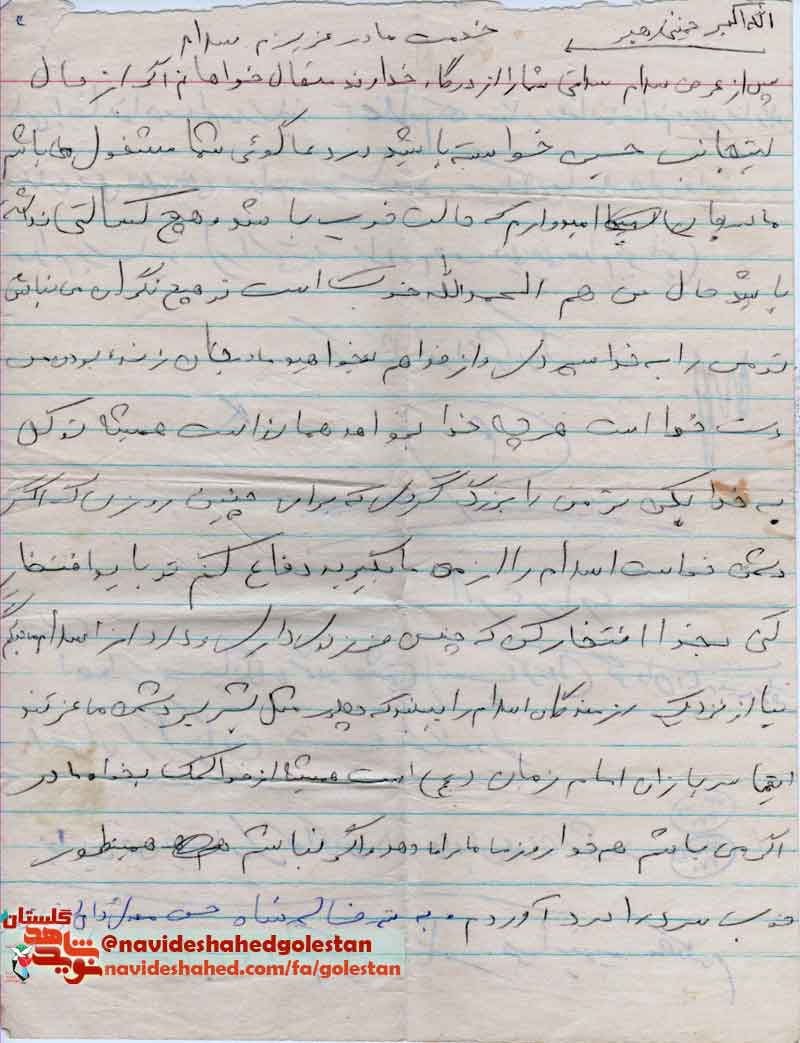 الله اکبر خمینی رهبر
خدمت مادر عزیزم سلام
پس از عرض سلام سلامتی شما را از درگاه خداوند متعال خواهانم اگر از حال
اینجانب حسین خواسته باشید در دعاگوئی شما مشغول می باشم
مادر جان امیدوارم که حالت خوب باشد و هیچ کسالتی نداشته
باشید حال من هم الحمدالله خوب است تو هیچ نگران من نباش
تو من را به خدا سپردی و از خدا هم بخواهید مادر جان زنده بودن من
دست خدا است هر چه خدا بخواهد همان است همیشه توکل
به خدا بکن تو من را بزرگ کردی که برای چنین روزی که اگر
دشمن خواست اسلام را از من ما بگیرد دفاع کنم تو باید افتخار
کنی بخدا افتخار کن که چنین فرزندی داری و دارد از اسلام
بیا از نزدیک رزمندگان اسلام را ببیند که چطور مثل شیر بر دشمن ما
اینها سربازان امام زمان (عج) است همیشه از خدا کمک بخواه مادر
اگر من باشم هم خدا روز ما را ما دهد و اگر نباشم هم همینطور
خوب سر در را درد آوردم
@navideshahedgolestan
navideshahed.com/fa/golestan
نوید شاهد گلستان